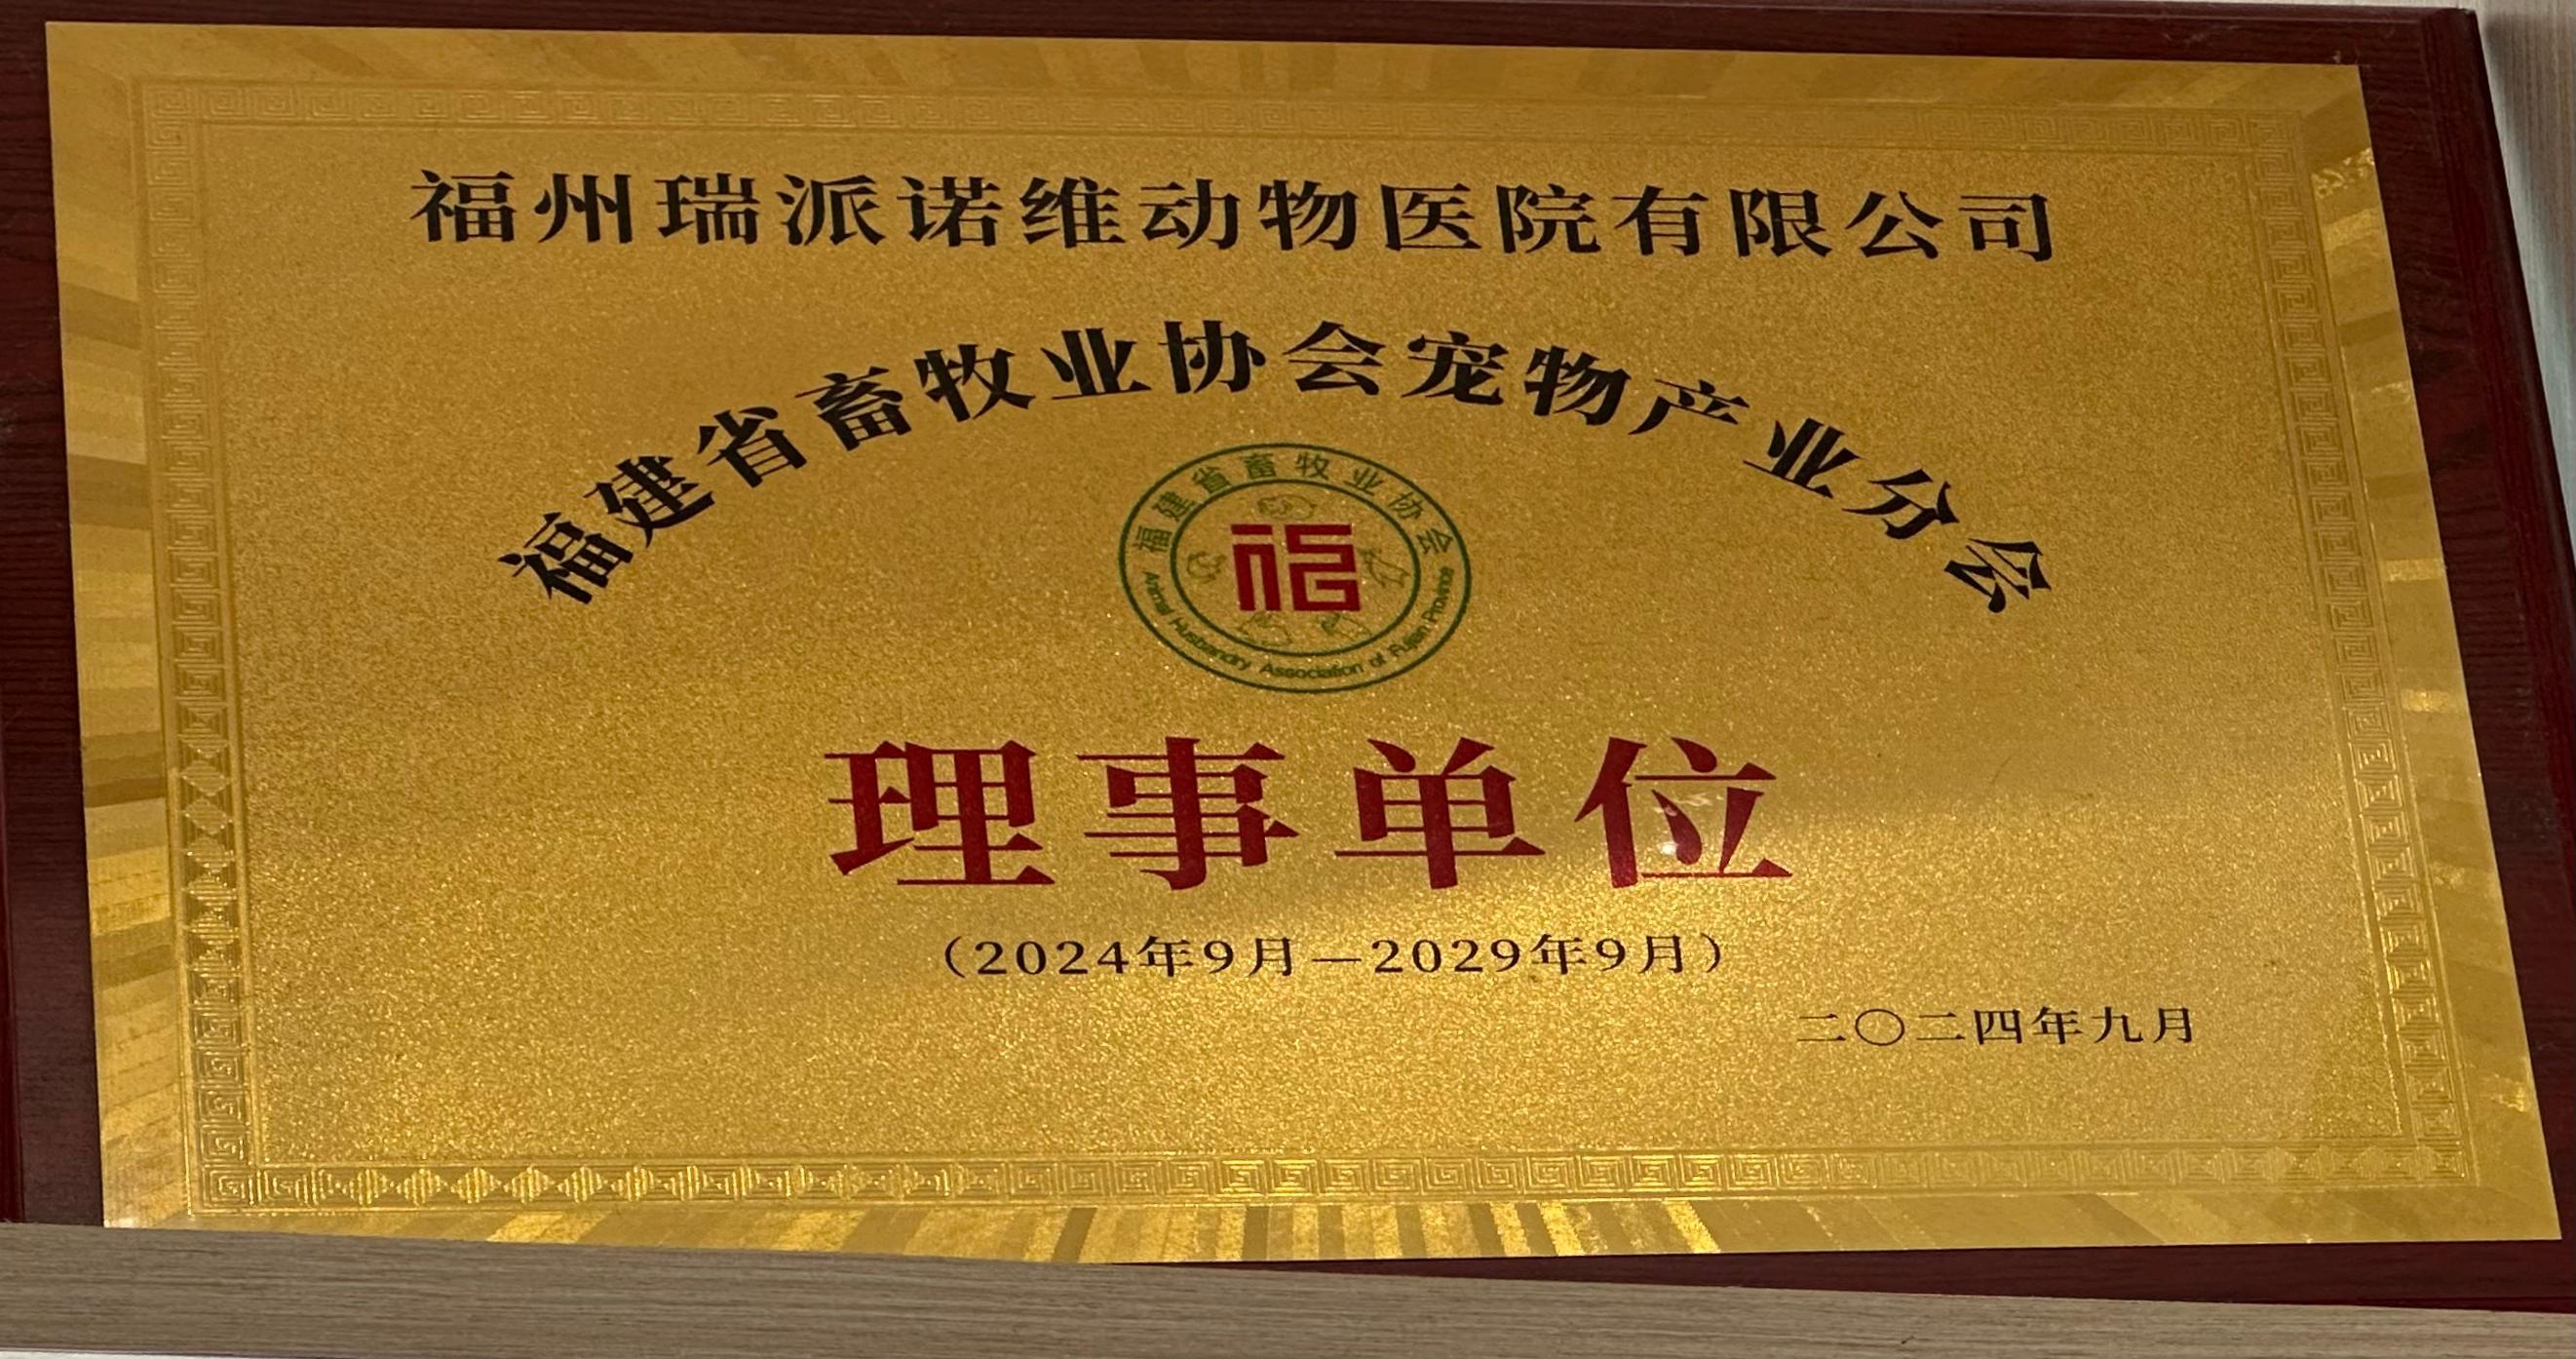 福州瑞派诺维动物医院有限公司
福建省畜牧业协会宠物产业分会
福建省畜牧业协会
福
Animal Husbandry Association of Fujian Province
理事单位
（2024年9月—2029年9月）
二〇二四年九月